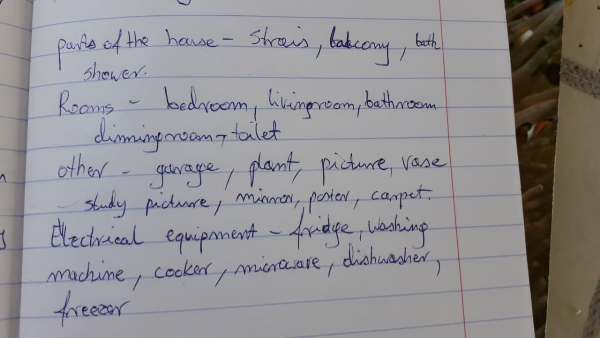 parts of the house - Strais, balcony, bath
shower.
Rooms - bedroom, livingroom, bathroom
dinningroom, toilet
other - garage, plant, picture, vase
- study picture, mirror, poster, carpet.
Electrical equipment - fridge, washing
machine, cooker, microware, dishwasher,
freezer